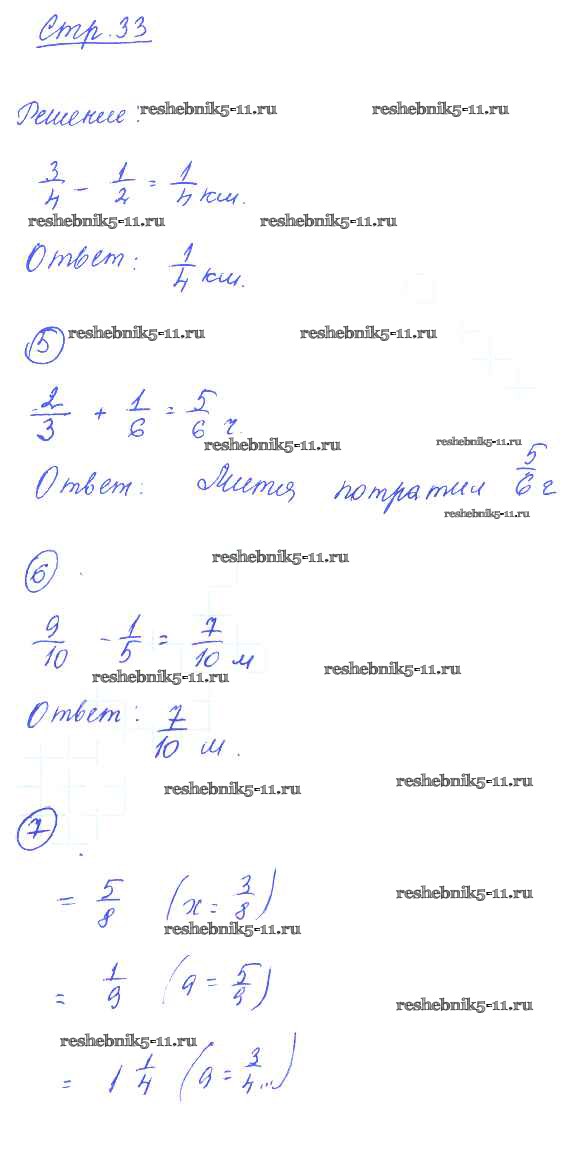 Стр. 33
Решение: reshebnik5-11.ru reshebnik5-11.ru
3/4 - 1/2 = 1/4 км.
reshebnik5-11.ru reshebnik5-11.ru
Ответ: 1/4 км.
5 reshebnik5-11.ru reshebnik5-11.ru
2/3 + 1/6 = 5/6 ч.
reshebnik5-11.ru reshebnik5-11.ru
Ответ: Митя потратил 5/6 ч
reshebnik5-11.ru
reshebnik5-11.ru
6
9/10 - 1/5 = 7/10 м
reshebnik5-11.ru reshebnik5-11.ru
Ответ: 7/10 м.
reshebnik5-11.ru reshebnik5-11.ru
7
= 5/8 (x = 3/8) reshebnik5-11.ru
reshebnik5-11.ru
= 1/9 (a = 5/9) reshebnik5-11.ru
reshebnik5-11.ru
= 1 1/4 (a = 3/4...)